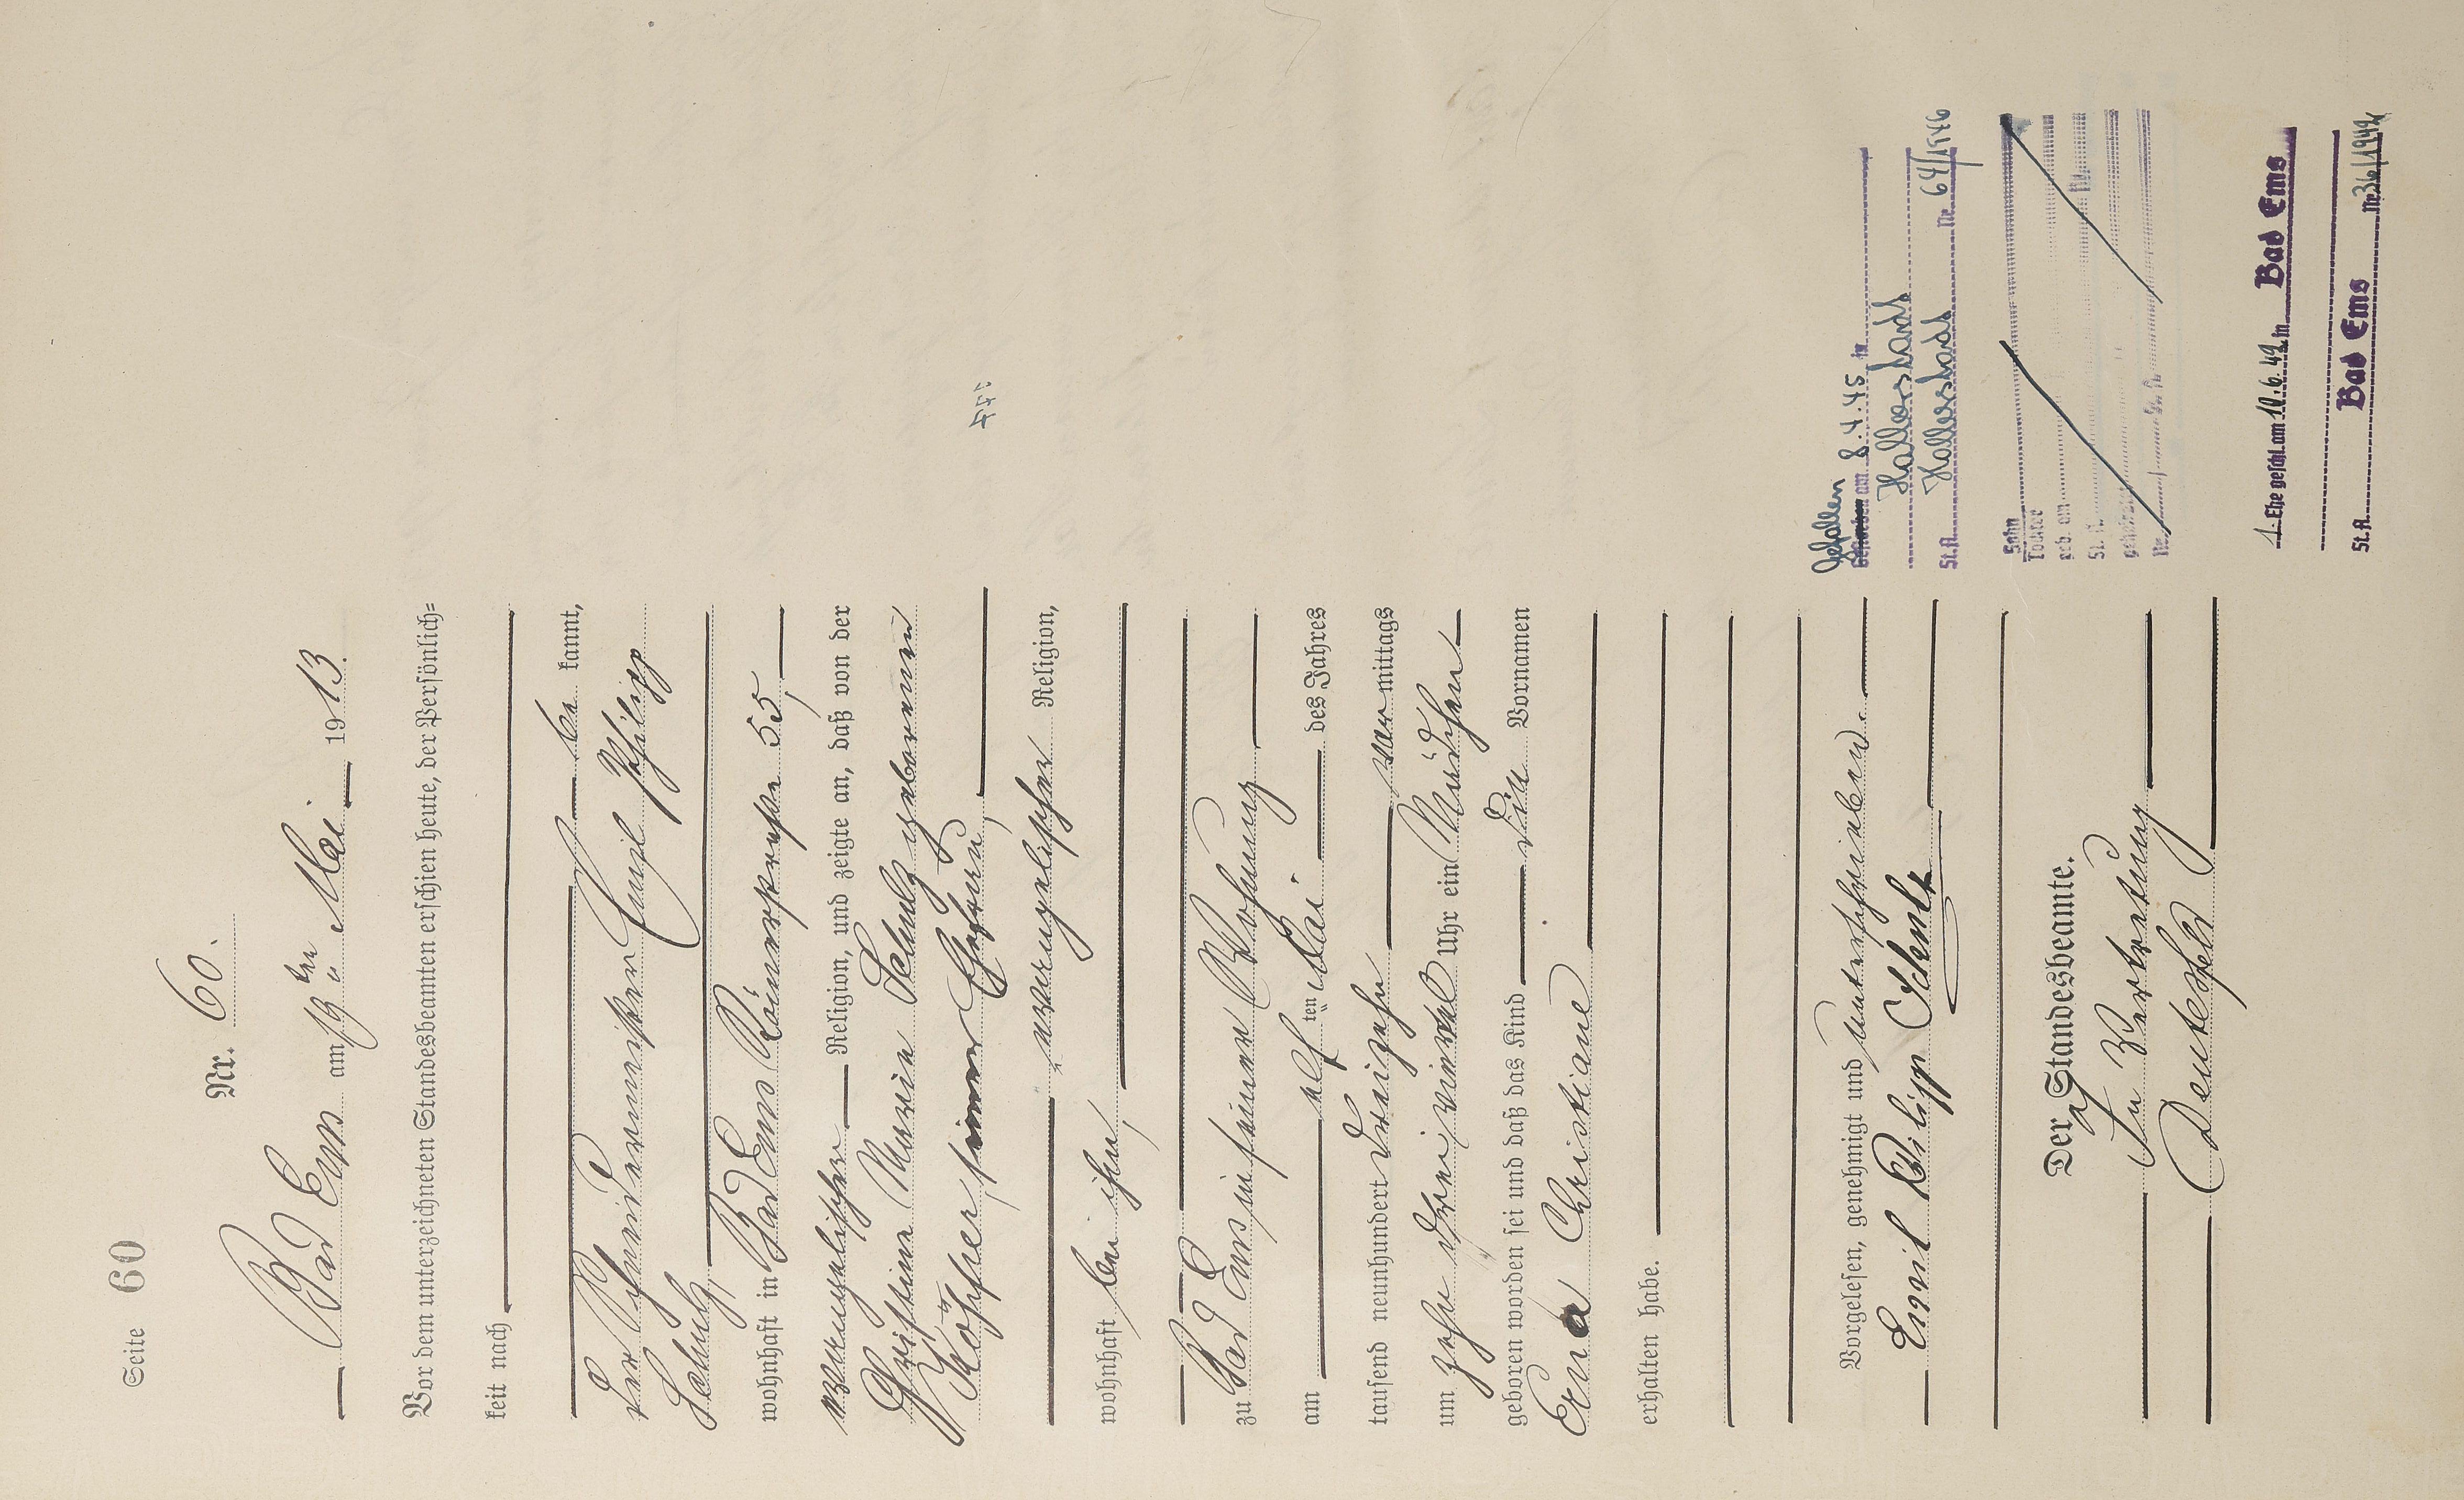 Seite 60
Nr. 60.
Bad Ems am 13ten Mai 1913.
Vor dem unterzeichneten Standesbeamten erschien heute, der Persönlich-
keit nach
be kannt,
der Schneidermeister Emil Philipp
Schulz,
wohnhaft in Bad Ems Römerstraße 55,
evangelischer Religion, und zeigte an, daß von der
Christine Marie Schulz geborenen
Kösster, seiner Ehefrau,
evangelischer Religion,
wohnhaft bei ihm,
zu Bad Ems in seiner Wohnung
am elf ten Mai des Jahres
tausend neunhundert dreizehn vor mittags
um zehn dreiviertel Uhr ein Mädchen
geboren worden sei und daß das Kind die Vornamen
Erna Christiane
erhalten habe.
Vorgelesen, genehmigt und unterschrieben.
Emil Philipp Schulz
Der Standesbeamte.
In Vertretung
Deutesfeld
gefallen
Gestorben am 8.4.45 in
Hallerstadt
St.A. Hallerstadt Nr. 64/1946
Sohn
Tochter
geb. am
St. A. Nr.
geheiratet
Nr. / St. A.
1. Ehe geschl. am 10.6.42 in Bad Ems
St.A. Bad Ems Nr. 36/1942